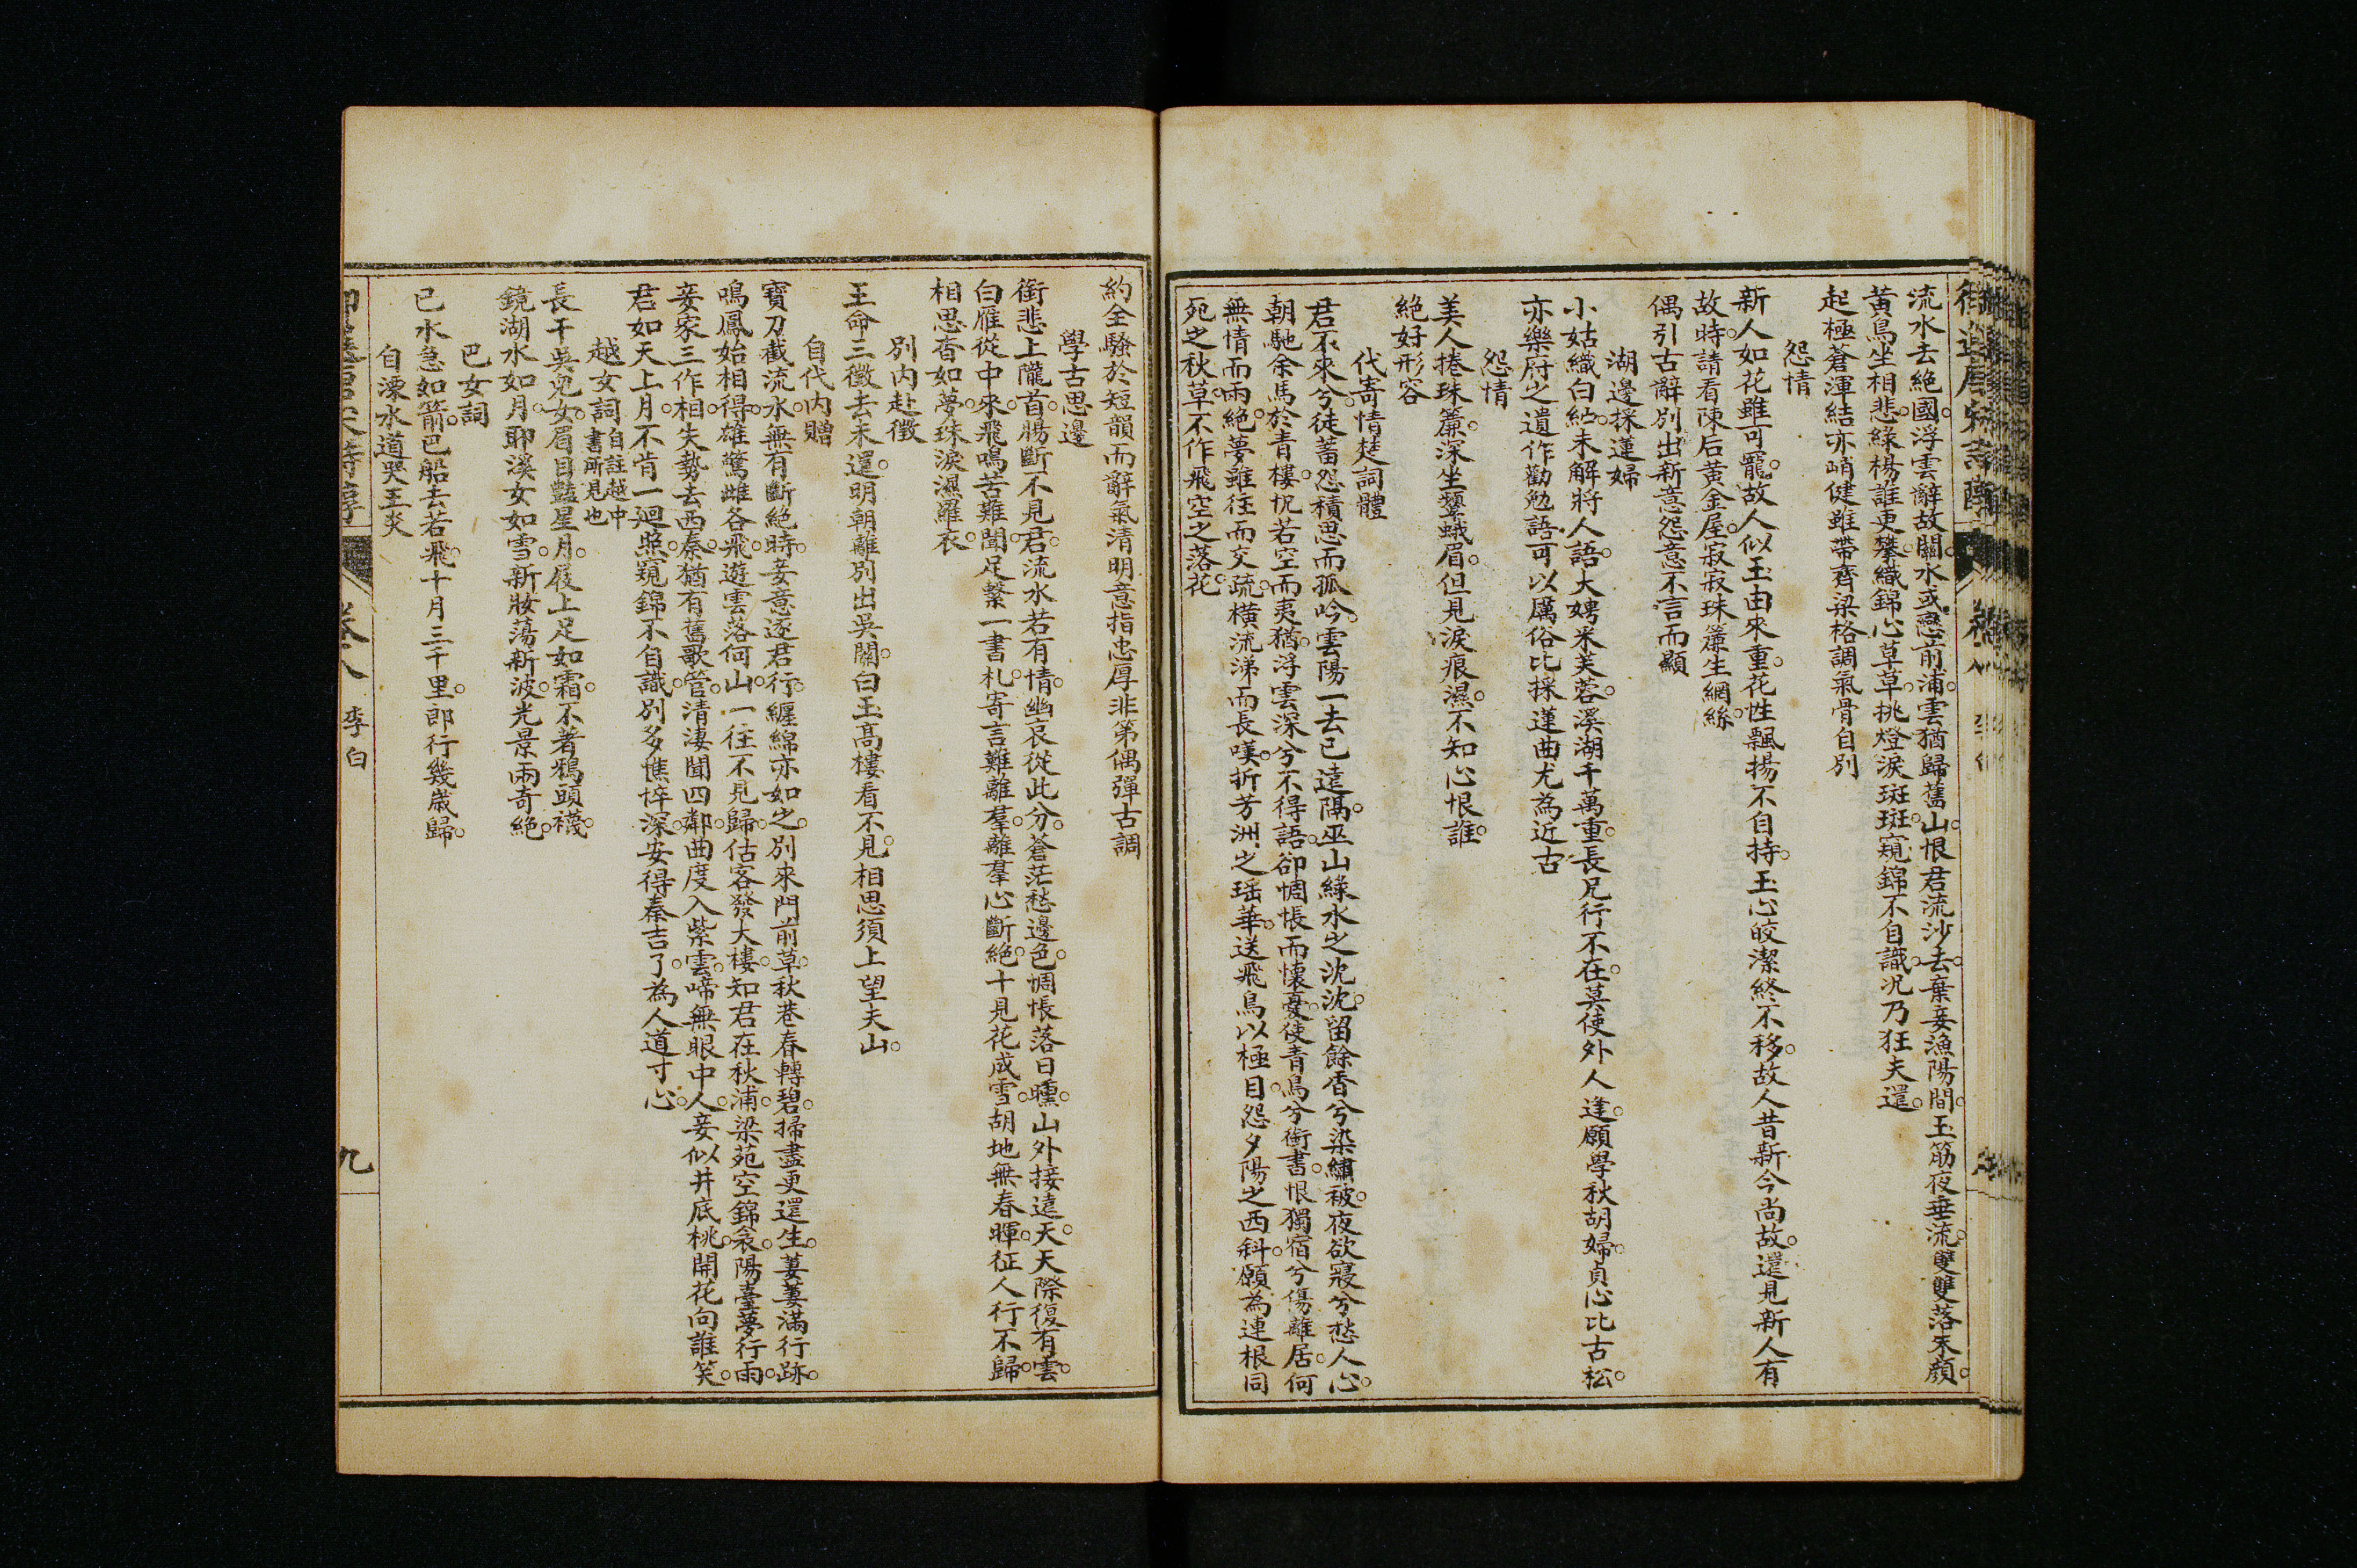 流水去絕國浮雲辭故關水或戀前浦雲猶歸舊山恨君流沙去棄妾漁陽間玉筯夜垂流雙雙落朱顏
黃鳥坐相悲綠楊誰更攀織錦心草草挑燈淚斑斑窺錦不自識況乃狂夫還
起極蒼渾結亦峭健雖帶齊梁格調氣骨自別
怨情
新人如花雖可寵故人似玉由來重花性飄揚不自持玉心皎潔終不移故人昔新今尚故還見新人有
故時請看陳后黃金屋寂寂珠簾生網絲
偶引古辭別出新意怨意不言而顯
湖邊採蓮婦
小姑織白紵未解將人語大嫂采芙蓉溪湖千萬重長兄行不在莫使外人逢願學秋胡婦貞心比古松
亦樂府之遺作勸勉語可以厲俗比採蓮曲尤為近古
怨情
美人捲珠簾深坐顰蛾眉但見淚痕濕不知心恨誰
絕好形容
代寄情楚詞體
君不來兮徒蓄怨積思而孤吟雲陽一去已遠隔巫山綠水之沈沈留餘香兮染繡被夜欲寢兮愁人心
朝馳余馬於青樓怳若空而夷猶浮雲深兮不得語卻惆悵而懷憂使青鳥兮銜書恨獨宿兮傷離居何
無情而雨絕夢雖往而交疏橫流涕而長嘆折芳洲之瑤華送飛鳥以極目怨夕陽之西斜願為連根同
死之秋草不作飛空之落花
約全騷於短韻而辭氣清明意指忠厚非第偶彈古調
學古思邊
銜悲上隴首腸斷不見君流水若有情幽哀從此分蒼茫愁邊色惆悵落日曛山外接遠天天際復有雲
白雁從中來飛鳴苦難聞足繫一書札寄言難離羣離羣心斷絕十見花成雪胡地無春暉征人行不歸
相思杳如夢珠淚濕羅衣
別內赴徵
王命三徵去未還明朝離別出吳關白玉高樓看不見相思須上望夫山
自代內贈
寶刀截流水無有斷絕時妾意逐君行纏綿亦如之別來門前草秋巷春轉碧掃盡更還生萋萋滿行跡
鳴鳳始相得雄驚雌各飛遊雲落何山一往不見歸估客發大樓知君在秋浦梁苑空錦衾陽臺夢行雨
妾家三作相失勢去西秦猶有舊歌管清淒聞四鄰曲度入紫雲啼無眼中人妾似井底桃開花向誰笑
君如天上月不肯一迴照窺錦不自識別多憔悴深安得秦吉了為人道寸心
越女詞 自註越中書所見也
長干吳兒女眉目豔星月屐上足如霜不著鴉頭襪
鏡湖水如月耶溪女如雪新妝蕩新波光景兩奇絕
巴女詞
巴水急如箭巴船去若飛十月三千里郎行幾歲歸
自溧水道哭王炎
卷八 李白 九